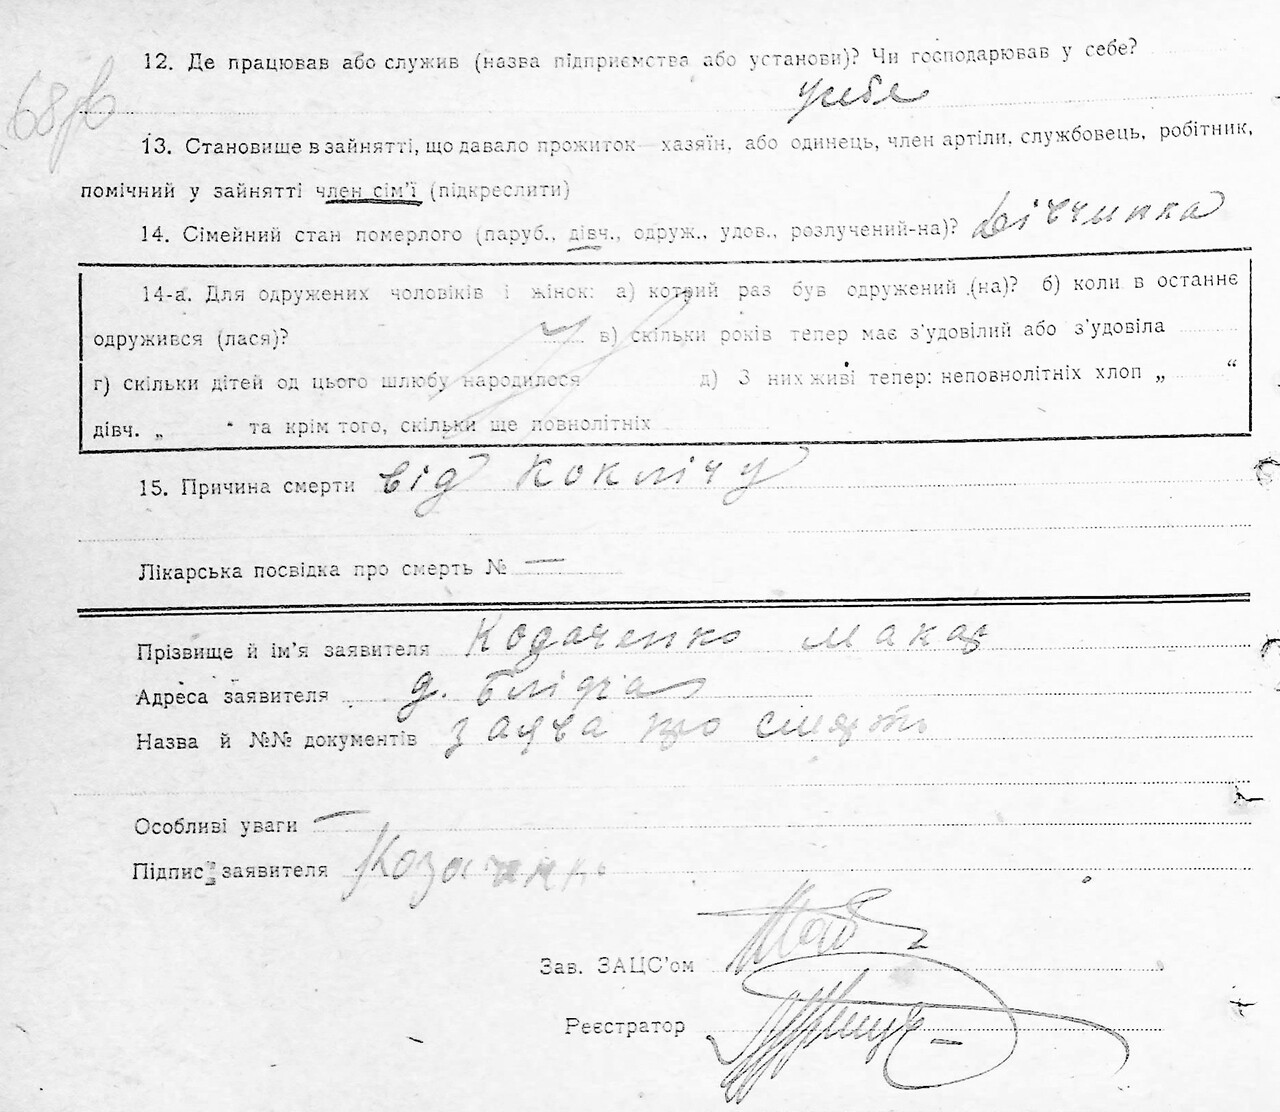 12. Де працював або служив (назва підприємства або установи)? Чи господарював у себе?
68
у себе
13. Становище в зайнятті, що давало прожиток—хазяїн, або одинець, член артіли, службовець, робітник,
помічний у зайнятті член сім'ї (підкреслити)
14. Сімейний стан померлого (паруб., дівч., одруж., удов., розлучений-на)? дівчинка
14-а. Для одружених чоловіків і жінок: а) котрий раз був одружений (на)? б) коли в останнє
одружився (лася)? в) скільки років тепер має з'удовілий або з'удовіла
г) скільки дітей од цього шлюбу народилося д) З них живі тепер: неповнолітніх хлоп „ “
дівч. „ “ та крім того, скільки ще повнолітніх
15. Причина смерти від коклічу
Лікарська посвідка про смерть № —
Прізвище й ім'я заявителя Кодаченко Макар
Адреса заявителя д. Блідча
Назва й №№ документів заява про смерть
Особливі уваги —
Підпис заявителя Козаченко
Зав. ЗАЦС'ом
Реєстратор